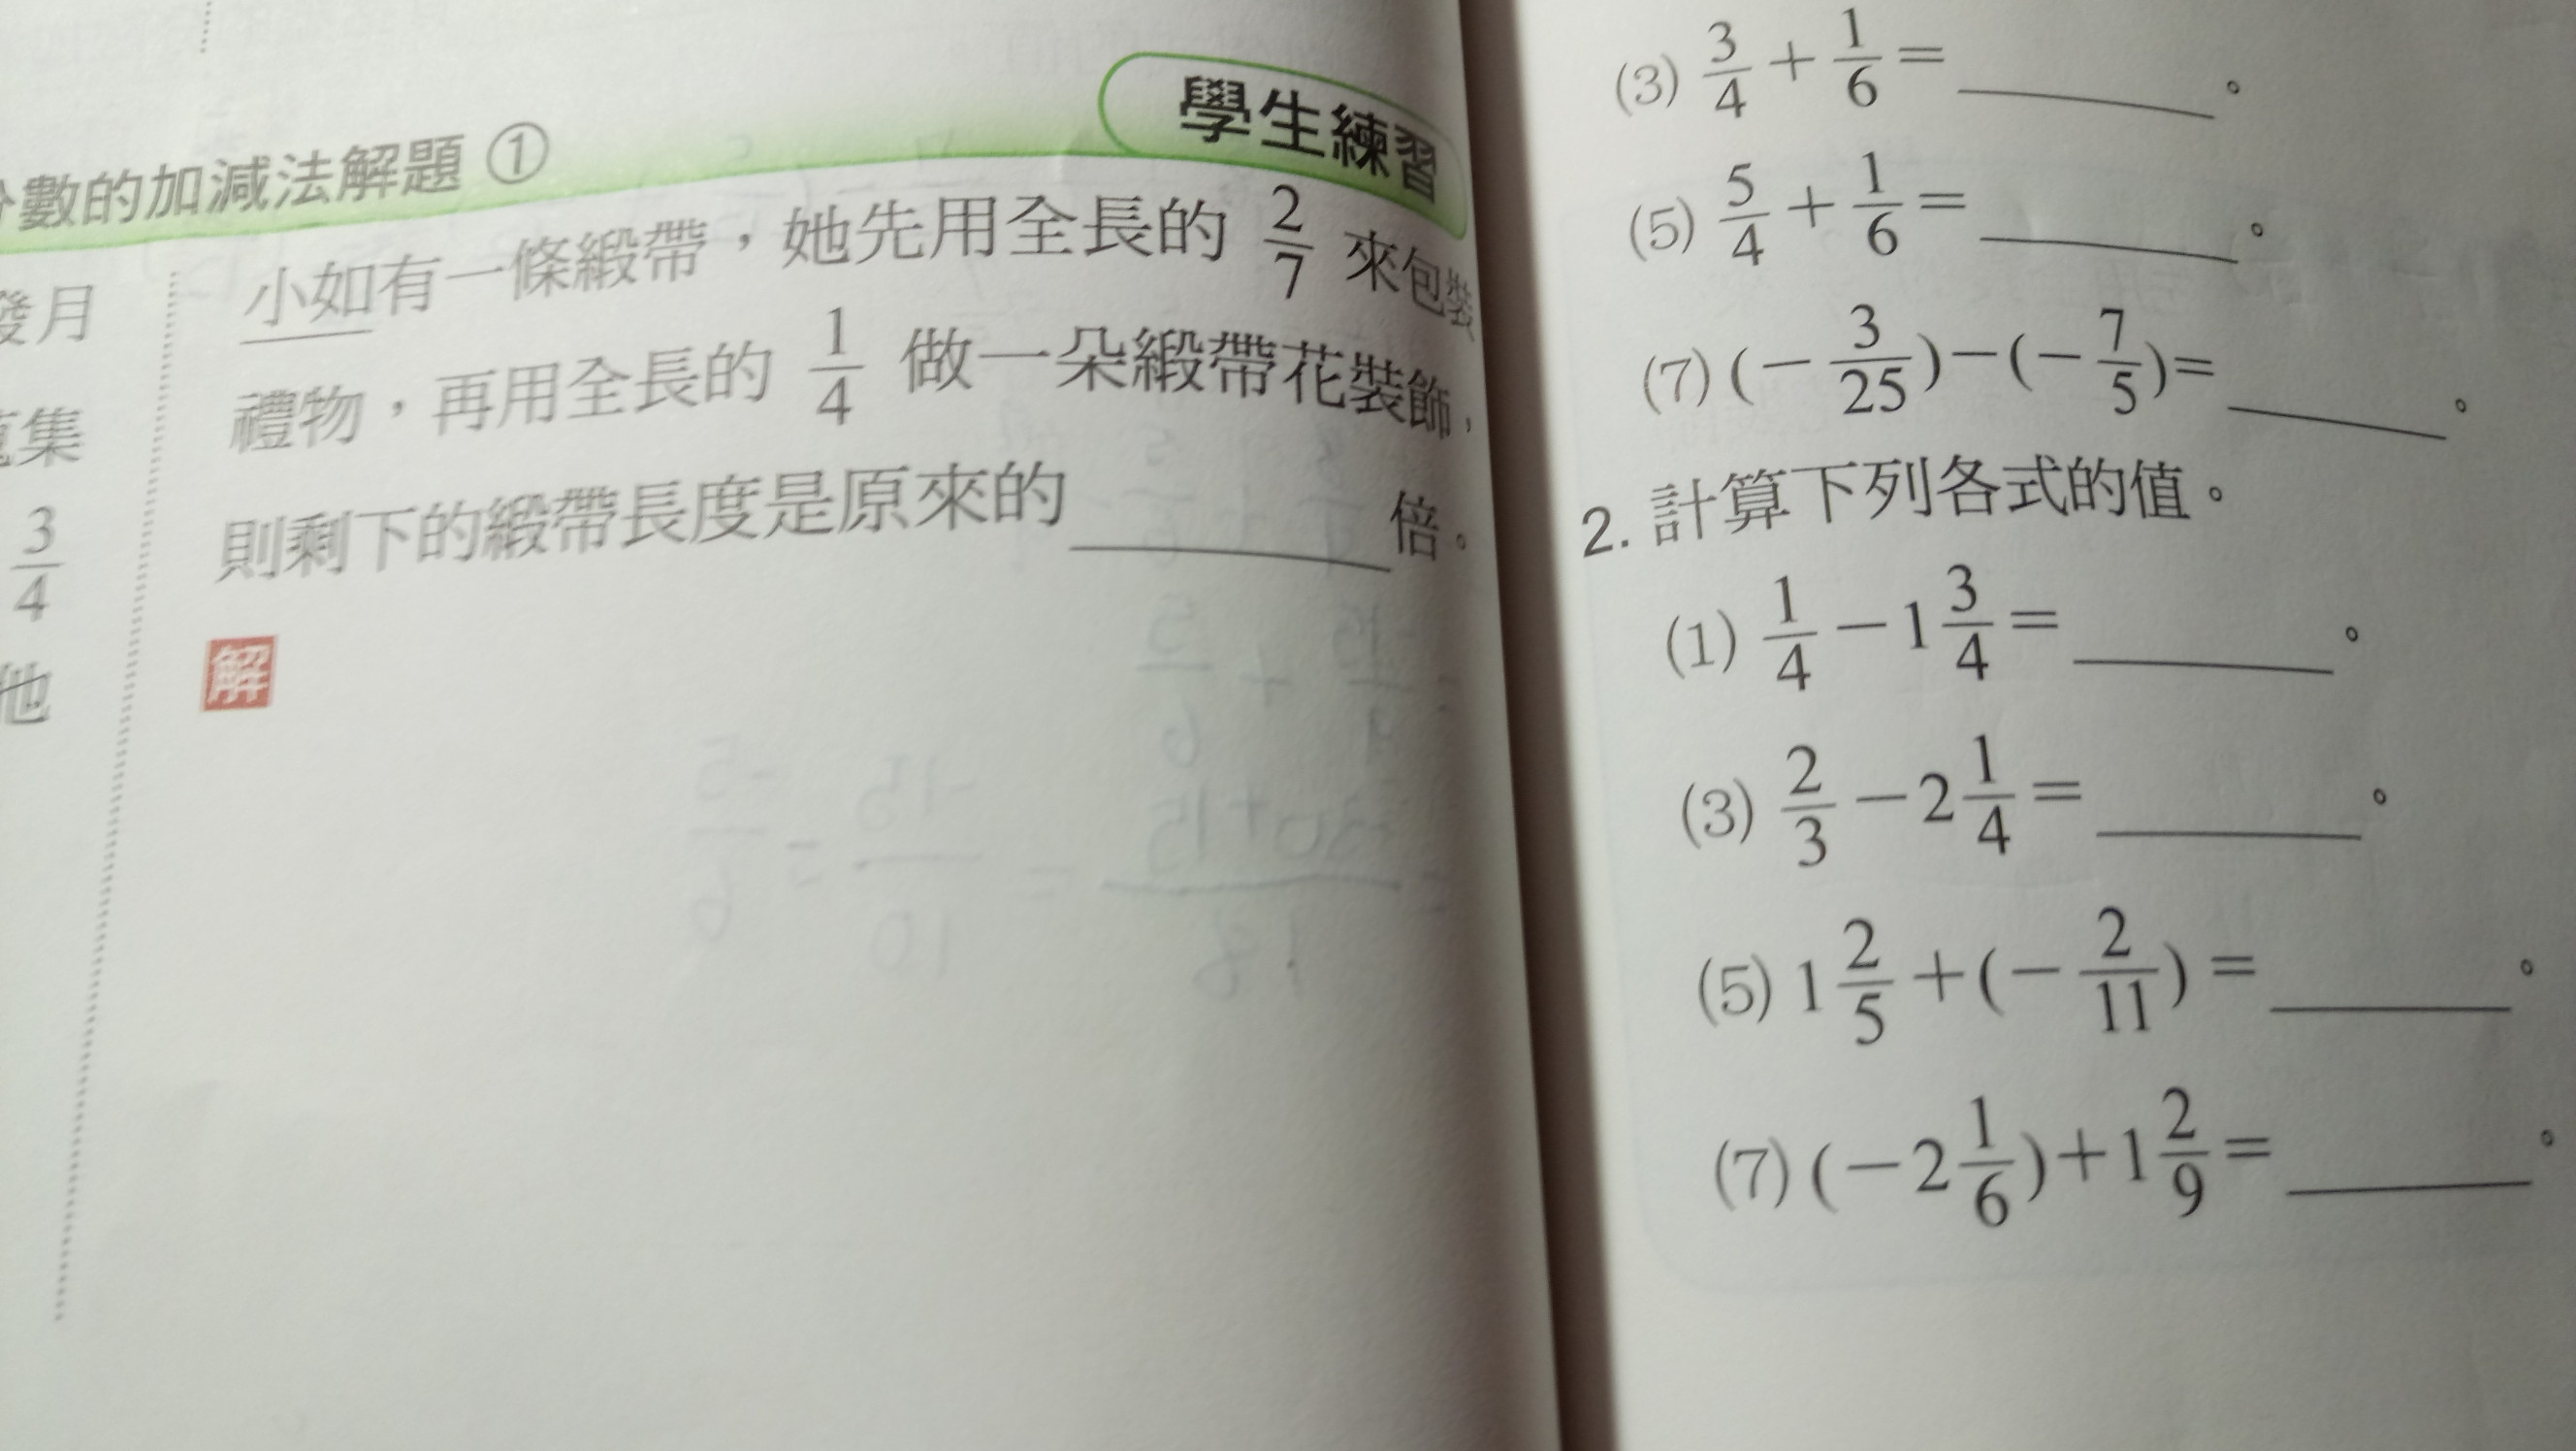 學生練習
數的加減法解題 ①
小如有一條緞帶，她先用全長的 2/7 來包裝
禮物，再用全長的 1/4 做一朵緞帶花裝飾，
則剩下的緞帶長度是原來的______倍。
解
發月
集
3/4
他
(3) 3/4 + 1/6 = ______。
(5) 5/4 + 1/6 = ______。
(7) (- 3/25) - (- 7/5) = ______。
2. 計算下列各式的值。
(1) 1/4 - 1 3/4 = ______。
(3) 2/3 - 2 1/4 = ______。
(5) 1 2/5 + (- 2/11) = ______。
(7) (-2 1/6) + 1 2/9 = ______。